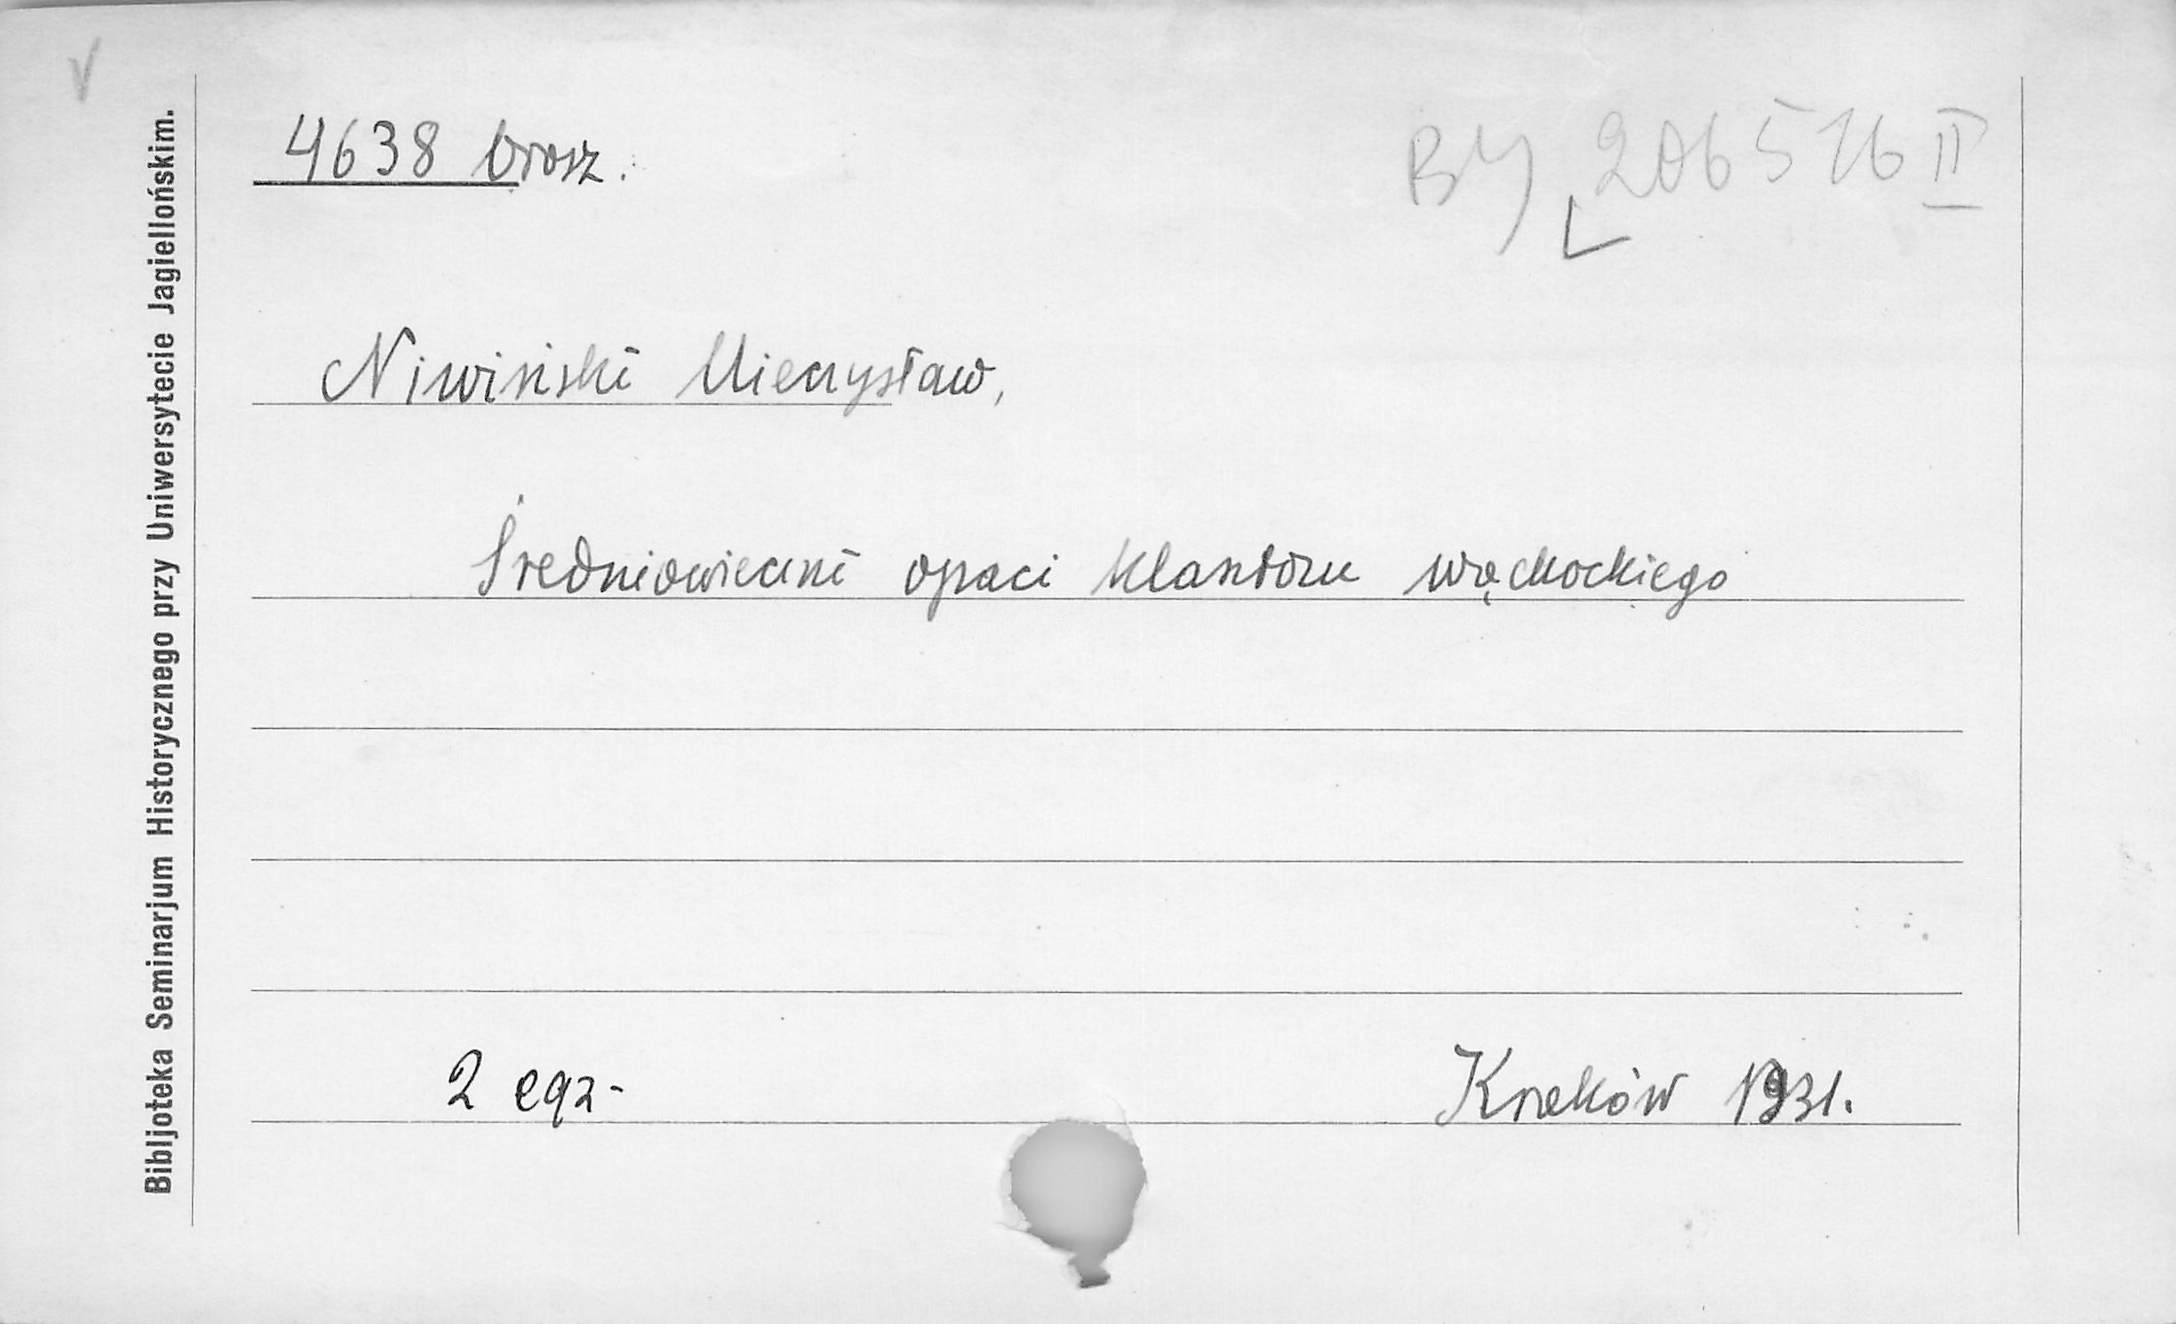 4638 brosz.
BJ 206516 II
Niwiński Mieczysław,
Średniowieczni opaci klasztoru wąchockiego
2 egz-
Kraków 1931.
Bibljoteka Seminarjum Historycznego przy Uniwersytecie Jagiellońskim.